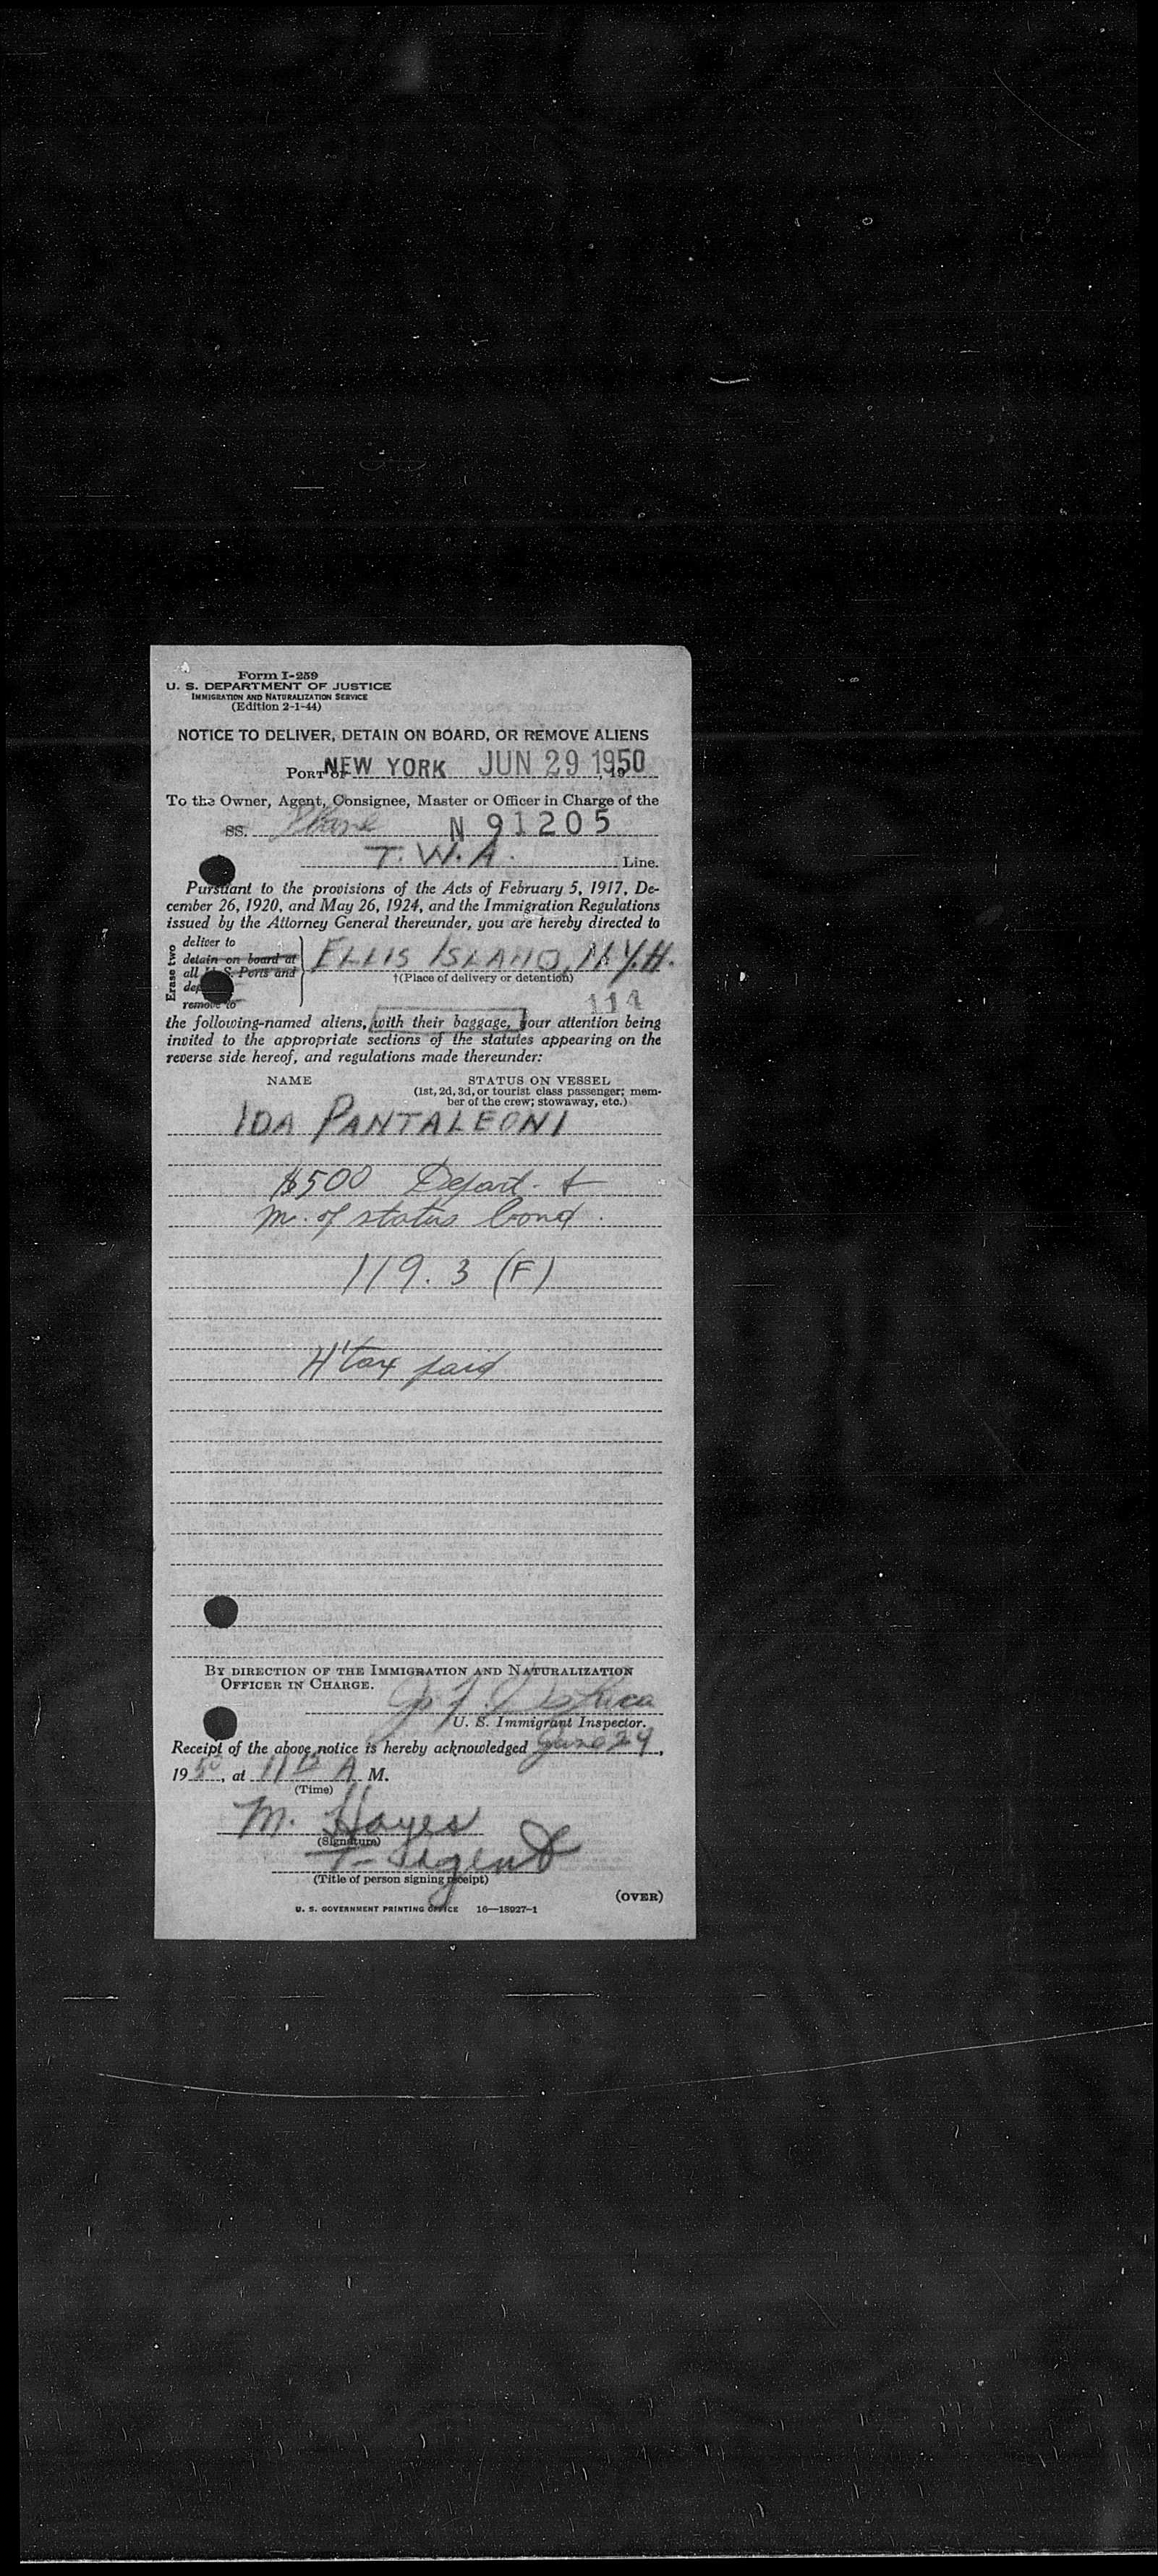 Form I-259
U. S. DEPARTMENT OF JUSTICE
IMMIGRATION AND NATURALIZATION SERVICE
(Edition 2-1-44)
NOTICE TO DELIVER, DETAIN ON BOARD, OR REMOVE ALIENS
PORT OF NEW YORK JUN 29 1950
To the Owner, Agent, Consignee, Master or Officer in Charge of the
SS. Plane N 91205
T. W. A. Line.
Pursuant to the provisions of the Acts of February 5, 1917, De-
cember 26, 1920, and May 26, 1924, and the Immigration Regulations
issued by the Attorney General thereunder, you are hereby directed to
Erase two
deliver to
detain on board at
all U. S. Ports and
remove to
ELLIS ISLAND, N.Y.H.
†(Place of delivery or detention)
114
the following-named aliens, with their baggage, your attention being
invited to the appropriate sections of the statutes appearing on the
reverse side hereof, and regulations made thereunder:
NAME STATUS ON VESSEL
(1st, 2d, 3d, or tourist class passenger; mem-
ber of the crew; stowaway, etc.)
IDA PANTALEONI
$500 Depart. &
m. of status bond.
119.3 (F)
H'tax paid
BY DIRECTION OF THE IMMIGRATION AND NATURALIZATION
OFFICER IN CHARGE.
U. S. Immigrant Inspector.
Receipt of the above notice is hereby acknowledged June 29,
1950, at 11 A M.
(Time)
M. Hayes
(Signature)
T- Agent
(Title of person signing receipt)
(OVER)
U. S. GOVERNMENT PRINTING OFFICE 16—18927-1